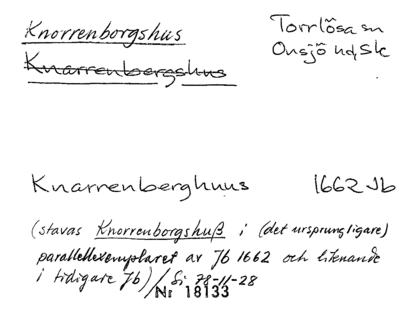 Knorrenborgshus
Knarrenbergshus
Torrlösa sn
Onsjö hd, Sk
Knarrenberghuus 1662 Jb
(stavas Knorrenborgshuß i (det ursprungligare)
parallellexemplaret av Jb 1662 och liknande
i tidigare Jb) / Si 78-11-28
Nr 18133